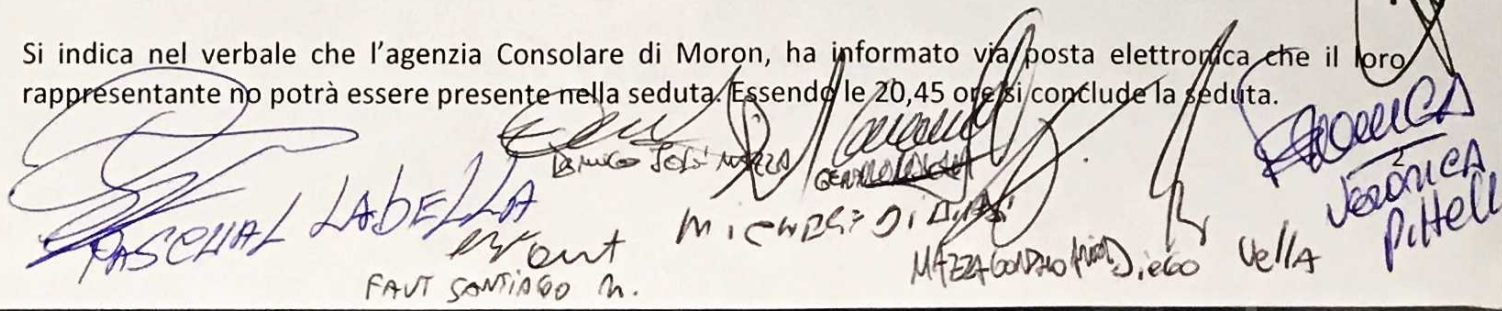 Si indica nel verbale che l'agenzia Consolare di Moron, ha informato via posta elettronica che il loro
rappresentante no potrà essere presente nella seduta. Essendo le 20,45 ore si conclude la seduta.
José
PASCUAL LABELLA
FAUT SANTIAGO M.
MAZZA Diego Vella
VERÓNICA
Pittelli